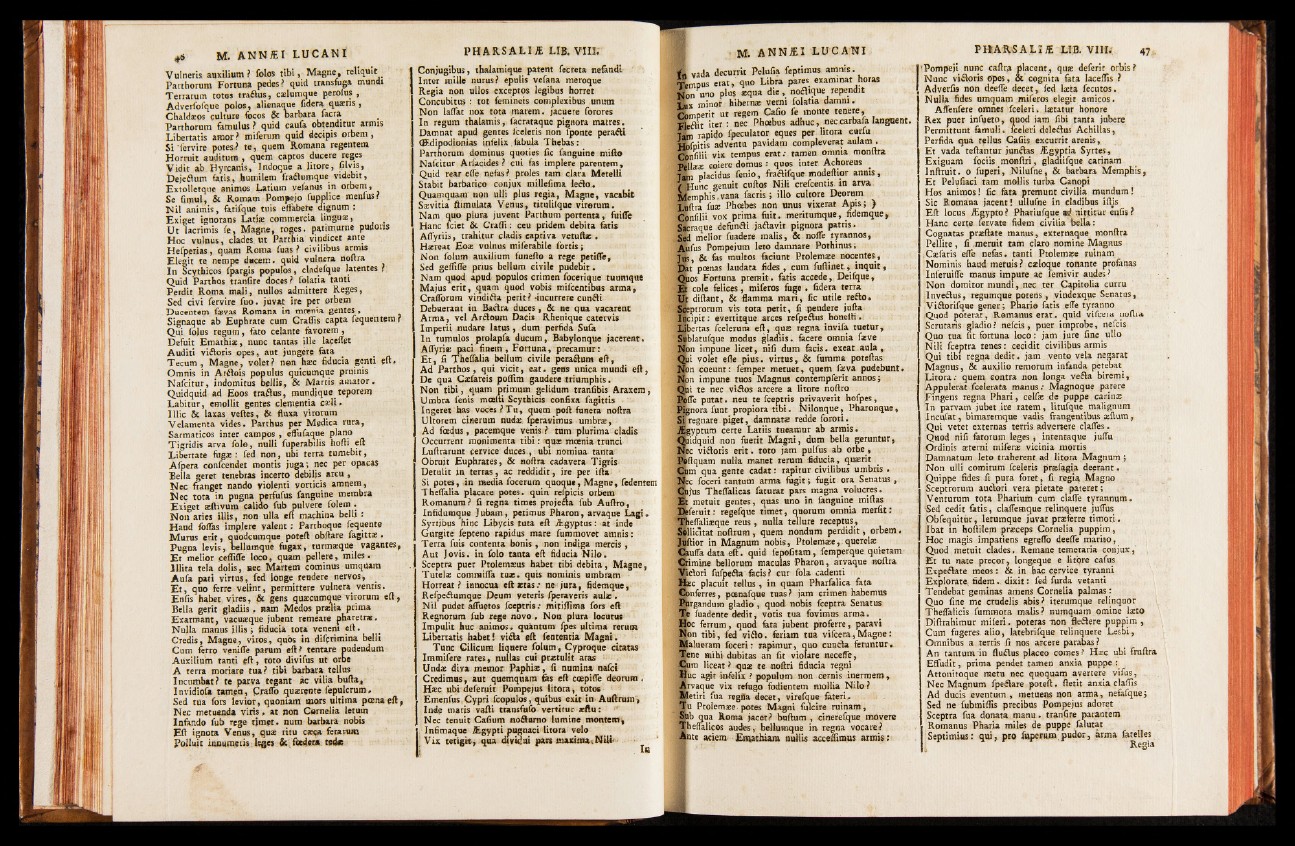 46 M. ANNÆI LUCANI
Vulneris auxilium? solos tibi, Magne, reliquit
Parthorum Fortuna pedes? quid transfuga mundi
Terrarum totos tractus, cælumque perosus,
Adversosque polos, alienaque sidera quæris,
Chaldæos culture focos & barbara sacra
Parthorum famulus? quid causa obtenditur armis
Libertatis amor? miserum quid decipis orbem,
Si servire potes? te, quem Romana regentem
Horruit auditum, quem captos ducere reges
Vidit ab Hyrcanis, Indoque a litore, silvis,
Dejectum fatis, humilem fractumque videbit,
Extolletque animos Latium vesanus in orbem,
Se simul, & Romam Pompejo supplice mensus?
Nil animis, fatisque tuis effabere dignum:
Exiget ignorans Latiæ commercia linguæ,
Ut lacrimis se, Magne, roges. patimurne pudoris
Hoc vulnus, clades ut Parthia vindicet ante
Hesperias, quam Roma suas? civilibus armis
Elegit te nempe ducem. quid vulnera nostra
In Scythicos spargis populos, cladesque latentes?
Quid Parthos transire doces? solatia tanti
Perdit Roma mali, nullos admittere Reges,
Sed civi servire suo. juvat ire per orbem
Ducentem sævas Romana in mœnia gentes,
Signaque ab Euphrate cum Crassis capta sequentem?
Qui solus regum, fato celante favorem,
Defuit Emathiæ, nunc tantas ille lacesset
Auditi victoris opes, aut jungere fata
Tecum, Magne, volet? non hæc fiducia genti est.
Omnis in Arctois populus quicumque pruinis
Nascitur, indomitus bellis, & Martis amator.
Quidquid ad Eoos tractus, mundique teporem
Labitur, emollit gentes clementia cæli.
Illic & laxas vestes, & fluxa virorum
Velamenta vides. Parthus per Medica rura,
Sarmaticos inter campos, effusaque plano
Tigridis arva solo, nulli superabilis hosti est
Libertate fugæ: sed non, ubi terra tumebit,
Aspera conscendet montis juga; nec per opacas
Bella geret tenebras incerto debilis arcu,
Nec franget nando violenti vorticis amnem,
Nec tota in pugna perfusus sanguine membra
Exiget æstivum calido sub pulvere solem.
Non aries illis, non ulla est machina belli:
Haud fossas implere valent: Parthoque sequente
Murus erit, quodcumque potest obstare sagittæ.
Pugna levis, bellumque fugax, turmæque vagantes,
Et melior cessisse loco, quam pellere, miles.
Illita tela dolis, nec Martem cominus umquam
Ausa pati virtus, sed longe tendere nervos,
Et, quo ferre velint, permittere vulnera ventis.
Ensis habet vires, & gens quæcumque virorum est,
Bella gerit gladiis. nam Medos prælia prima
Exarmant, vacuæque jubent remeare pharetræ.
Nulla manus illis; fiducia tota veneni est.
Credis, Magne, viros, quos in discrimina belli
Cum ferro venisse parum est? tentare pudendum
Auxilium tanti est, toto divisus ut orbe
A terra moriare tua? tibi barbara tellus
Incumbat? te parva tegant ac vilia busta,
Invidiosa tamen, Crasso quærente sepulcrum.
Sed tua sors levior, quoniam mors ultima pœna est,
Nec metuenda viris. at non Cornelia letum
Infando sub rege timet. num barbara nobis
Est ignota Venus, quæ ritu cæca ferarum
Polluit innumeris leges & fœdera tedæ
PHARSALIÆ LIB. VIII.
Conjugibus, thalamique patent secreta nefandi
Inter mille nurus? epulis vesana meroque
Regia non ullos exceptos legibus horret
Concubitus: tot femineis complexibus unum
Non lassat nox tota marem. jacuere sorores
In regum thalamis, sacrataque pignora matres.
Damnat apud gentes sceleris non sponte peracti
Œdipodionias infelix fabula Thebas:
Parthorum dominus quoties sic sanguine misto
Nascitur Arsacides? cui fas implere parentem,
Quid rear esse nefas? proles tam clara Metelli
Stabit barbarico conjux millesima lecto.
Quamquam non ulli plus regia, Magne, vacabit
Sævitia stimulata Venus, titulisque virorum.
Nam quo plura juvent Parthum portenta, fuisse
Hanc sciet & Crassi: ceu pridem debita fatis
Assyriis, trahitur cladis captiva vetustæ.
Hæreat Eoæ vulnus miserabile sortis;
Non solum auxilium funesto a rege petisse,
Sed gessisse prius bellum civile pudebit.
Nam quod apud populos crimen socerique tuumque
Majus erit, quam quod vobis miscentibus arma,
Crassorum vindicta perit? incurrere cuncti
Debuerant in Bactra duces, & ne qua vacarent
Arma, vel Arctoum Dacis Rhenique catervis
Imperii nudare latus, dum perfida Susa
In tumulos prolapsa ducum, Babylonque jacerent.
Assyriæ paci finem, Fortuna, precamur:
Et, si Thessalia bellum civile peractum est,
Ad Parthos, qui vicit, eat. gens unica mundi est,
De qua Cæsareis possim gaudere triumphis.
Non tibi, quam primum gelidum transibis Araxem,
Umbra senis mœsti Scythicis confixa sagittis
Ingeret has voces? Tu, quem post funera nostra
Ultorem cinerum nudæ speravimus umbræ,
Ad fœdus, pacemque venis? tum plurima cladis
Occurrent monimenta tibi: quæ mœnia trunci
Lustrarunt cervice duces, ubi nomina tanta
Obruit Euphrates, & nostra cadavera Tigris
Detulit in terras, ac reddidit, ire per ista
Si potes, in media socerum quoque, Magne, sedentem
Thessalia placare potes. quin respicis orbem
Romanum? si regna times projecta sub Austro,
Infidumque Jubam, petimus Pharon, arvaque Lagi.
Syrtibus hinc Libycis tuta est Ægyptus: at inde
Gurgite septeno rapidus mare summovet amnis:
Terra suis contenta bonis, non indiga mercis,
Aut Jovis. in solo tanta est fiducia Nilo.
Sceptra puer Ptolemæus habet tibi debita, Magne,
Tutelæ commissa tuæ. quis nominis umbram
Horreat? innocua est ætas: ne jura, fidemque,
Respectumque Deum veteris speraveris aulæ.
Nil pudet assuetos sceptris: mitissima sors est
Regnorum sub rege novo. Non plura locutus
Impulit huc animos. quantum spes ultima rerum
Libertatis habet! victa est sententia Magni.
Tunc Cilicum liquere solum, Cyproque citatas
Immisere rates, nullas cui prætulit aras
Undæ diva memor Paphiæ, si numina nasci
Credimus, aut quemquam fas est cœpisse deorum.
Hæc ubi deseruit Pompejus litora, totos
Emensus Cypri scopulos, quibus exit in Austrum,
Inde maris vasti transfuso vertitur æstu:
Nec tenuit Casium nocturno lumine montem,
Infimaque Ægypti pugnaci litora velo
Vix tetigit, qua dividui pars maxima Nili
In
M. ANNÆI LUCANI
In vada decurrit Pelusia septimus amnis.
Tempus erat, quo Libra pares examinat horas
Non uno plus æqua die, noctique rependit
Lux minor hibernæ verni solatia damni.
Comperit ut regem Casio se monte tenere,
Flectit iter: nec Phœbus adhuc, nec carbasa languent.
Jam rapido speculator eques per litora cursu
Hospitis adventu pavidam compleverat aulam.
Consilii vix tempus erat: tamen omnia monstra
Pellææ coiere domus: quos inter Achoreus
Jam placidus senio, fractisque modestior annis,
(Hunc genuit custos Nili crescentis in arva
Memphis vana sacris; illo cultore Deorum
Lustra suæ Phœbes non unus vixerat Apis;)
Consilii vox prima fuit. meritumque, fidemque,
Sacraque defuncti jactavit pignora patris.
Sed melior suadere malis, & nosse tyrannos,
Ausus Pompejum leto damnare Pothinus;
Jus, & fas multos faciunt Ptolemæe nocentes,
Dat pœnas laudata fides, cum sustinet, inquit,
Quos Fortuna premit. fatis accede, Deisque,
Et cole felices, miseros fuge. sidera terra
Ut distant, & flamma mari, sic utile recto.
Sceptrorum vis tota perit, si pendere justa
Incipit: evertitque arces respectus honesti.
Libertas scelerum est, quæ regna invisa tuetur,
Sublatusque modus gladiis. facere omnia sæve
Non impune licet, nisi dum facis. exeat aula,
Qui volet esse pius. virtus, & summa potestas
Non coeunt: semper metuet, quem sæva pudebunt.
Non impune tuos Magnus contempserit annos;
Qui te nec victos arcere a litore nostro
Posse putat. neu te sceptris privaverit hospes,
Pignora sunt propiora tibi. Nilonque, Pharonque,
Si regnare piget, damnatæ redde sorori.
Ægyptum certe Latiis tueamur ab armis.
Quidquid non fuerit Magni, dum bella geruntur,
Nec victoris erit. toto jam pulsus ab orbe,
Postquam nulla manet rerum fiducia, quærit
Cum qua gente cadat: rapitur civilibus umbris.
Nec soceri tantum arma fugit; fugit ora Senatus,
Cujus Thessalicas saturat pars magna volucres.
Et metuit gentes, quas uno in sanguine mistas
Deseruit: regesque timet, quorum omnia mersit:
Thessaliæque reus, nulla tellure receptus,
Sollicitat nostrum, quem nondum perdidit, orbem.
Justior in Magnum nobis, Ptolemæe, querelæ
Caussa data est. quid sepositam, semperque quietam
Crimine bellorum maculas Pharon, arvaque nostra
Victori suspecta facis? cur sola cadenti
Hæc placuit tellus, in quam Pharsalica fata
Conferres, pœnasque tuas? jam crimen habemus
Purgandum gladio, quod nobis sceptra Senatus
Te suadente dedit, votis tua fovimus arma.
Hoc ferrum, quod fata jubent proferre, paravi
Non tibi, sed victo. feriam tua viscera, Magne:
Malueram soceri: rapimur, quo cuncta feruntur.
Tene mihi dubitas an sit violare necesse,
Cum liceat? quæ te nostri fiducia regni
Huc agit infelix? populum non cernis inermem,
Arvaque vix refugo fodientem mollia Nilo?
Metiri sua regna decet, viresque fateri.
Tu Ptolemæe potes Magni fulcire ruinam,
Sub qua Roma jacet? bustum, cineresque movere
Thessalicos audes, bellumque in regna vocare?
Ante aciem Emathiam nullis accessimus armis:
PHARSALIÆ LIB. VIII. 47
Pompeji nunc castra placent, quæ deserit orbis?
Nunc victoris opes, & cognita fata lacessis?
Adversis non deesse decet, sed læta secutos.
Nulla fides umquam miseros elegit amicos.
Assensere omnes sceleri. lætatur honore
Rex puer insueto, quod jam sibi tanta jubere
Permittunt famuli. sceleri delectus Achillas,
Perfida qua tellus Casiis excurrit arenis,
Et vada testantur junctas Ægyptia Syrtes,
Exiguam sociis monstri, gladiisque carinam
Instruit. o superi, Nilusne, & barbara Memphis,
Et Pelusiaci tam mollis turba Canopi
Hos animos! sic fata premunt civilia mundum!
Sic Romana jacent! ullusne in cladibus istis
Est locus Ægypto? Phariusque admittitur ensis?
Hanc certe servate fidem civilia bella:
Cognatas præstate manus, externaque monstra
Pellite, si meruit tam claro nomine Magnus
Cæsaris esse nefas. tanti Ptolemæe ruinam
Nominis haud meruis? cæloque tonante profanas
Inseruisse manus impure ac semivir audes?
Non domitor mundi, nec ter Capitolia curru
Invectus, regumque potens, vindexque Senatus,
Victorisque gener; Phario satis esse tyranno
Quod poterat, Romanus erat. quid viscera nostra
Scrutaris gladio? nescis, puer improbe, nescis
Quo tua sit fortuna loco: jam jure sine ullo
Nili sceptra tenes: cecidit civilibus armis
Qui tibi regna dedit. jam vento vela negarat
Magnus, & auxilio remorum infanda petebat
Litora: quem contra non longa vecta biremi,
Appulerat scelerata manus: Magnoque patere
Fingens regna Phari, celsæ de puppe carinæ
In parvam jubet ire ratem, litusque malignum
Incusat, bimaremque vadis frangentibus æstum,
Qui vetet externas terris advertere classes.
Quod nisi fatorum leges, intentaque jussu
Ordinis æterni miseræ vicinia mortis
Damnatum leto traherent ad litora Magnum;
Non ulli comitum sceleris præsagia deerant.
Quippe fides si pura foret, si regia Magno
Sceptrorum auctori vera pietate pateret;
Venturum tota Pharium cum classe tyrannum.
Sed cedit fatis, classemque relinquere jussus
Obsequitur, letumque juvat præferre timori.
Ibat in hostilem præceps Cornelia puppim,
Hoc magis impatiens egresso deesse marito,
Quod metuit clades. Remane temeraria conjux,
Et tu nate precor, longeque e litore casus
Expectate meos: & in hac cervice tyranni
Explorate fidem. dixit: sed surda vetanti
Tendebat geminas amens Cornelia palmas:
Quo sine me crudelis abis? iterumque relinquor
Thessalicis summota malis? numquam omine læto
Distrahimur miseri. poteras non flectere puppim,
Cum fugeres alio, latebrisque relinquere Lesbi,
Omnibus a terris si nos arcere parabas?
An tantum in fluctus placeo comes? Hæc ubi frustra
Effudit, prima pendet tamen anxia puppe:
Attonitoque metu nec quoquam avertere visus,
Nec Magnum spectare potest. stetit anxia classis
Ad ducis eventum, metuens non arma, nefasque;
Sed ne submissis precibus Pompejus adoret
Sceptra sua donata manu. transire parantem
Romanus Pharia miles de puppe salutat
Septimius: qui, pro superum pudor, arma satelles
Regia